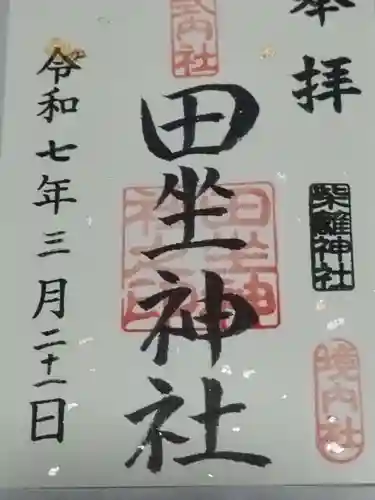 奉拝
柴籬神社
境内社
式内社
田坐神社
田坐神社
令和七年三月二十一日